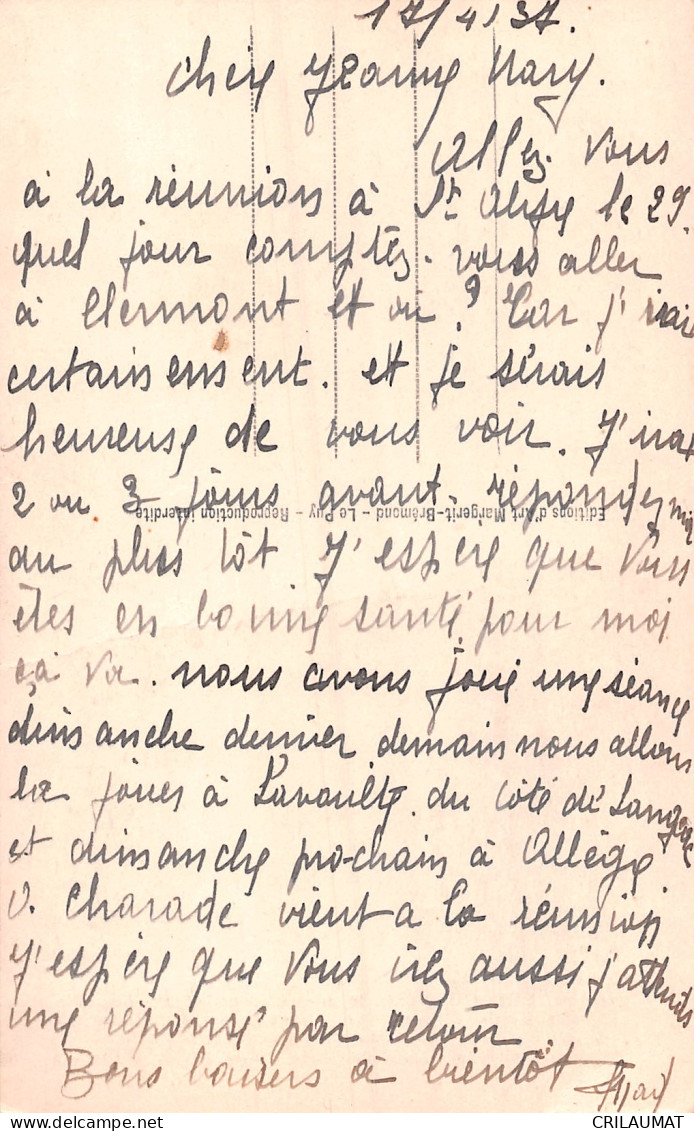 17/4/37.
Cher Jeanne Mary.
Allez. vous
à la réunion à St Alyre le 29.
quel jour comptez. vous aller
à Clermont et où ? Car j'irai
certainement. et je serais
heureuse de vous voir. J'irai
2 ou 3 jours avant. répondez moi
Editions d'Art Margerit-Brémond - Le Puy - Reproduction interdite
au plus tôt J'espère que vous
êtes en bonne santé. pour moi
ça va. nous avons joué une séance
dimanche dernier demain nous allons
la jouer à Lavoulte. du côté de Langeac
et dimanche prochain à Allègre
v. charade vient a la réunion
J'espère que vous irez aussi j'attends
une réponse par retour
Bons baisers à bientôt
CRILAUMAT